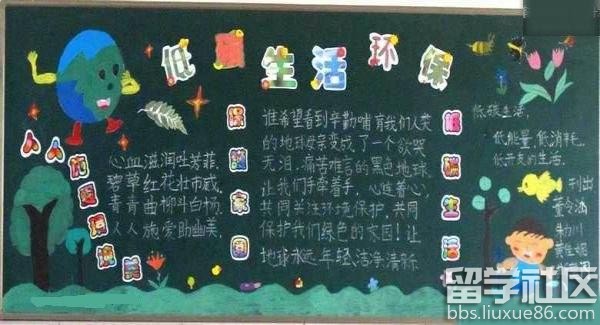 低碳生活环保
人人有爱环境美
心血滋润吐芳菲
碧草红花壮市威
青青曲柳斗白杨
人人施爱助幽美
保护家园
谁希望看到辛勤哺育我们人类
的地球母亲变成了一个欲哭
无泪,痛苦难言的黑色地球
让我们手牵着手,心连着心,
共同关注环境保护,共同
保护我们绿色的家园!让
地球永远年轻洁净清新
低碳生活
低碳生活,
低能量,低消耗,
低开支的生活.
刊出
留学社区
bbs.liuxue86.com